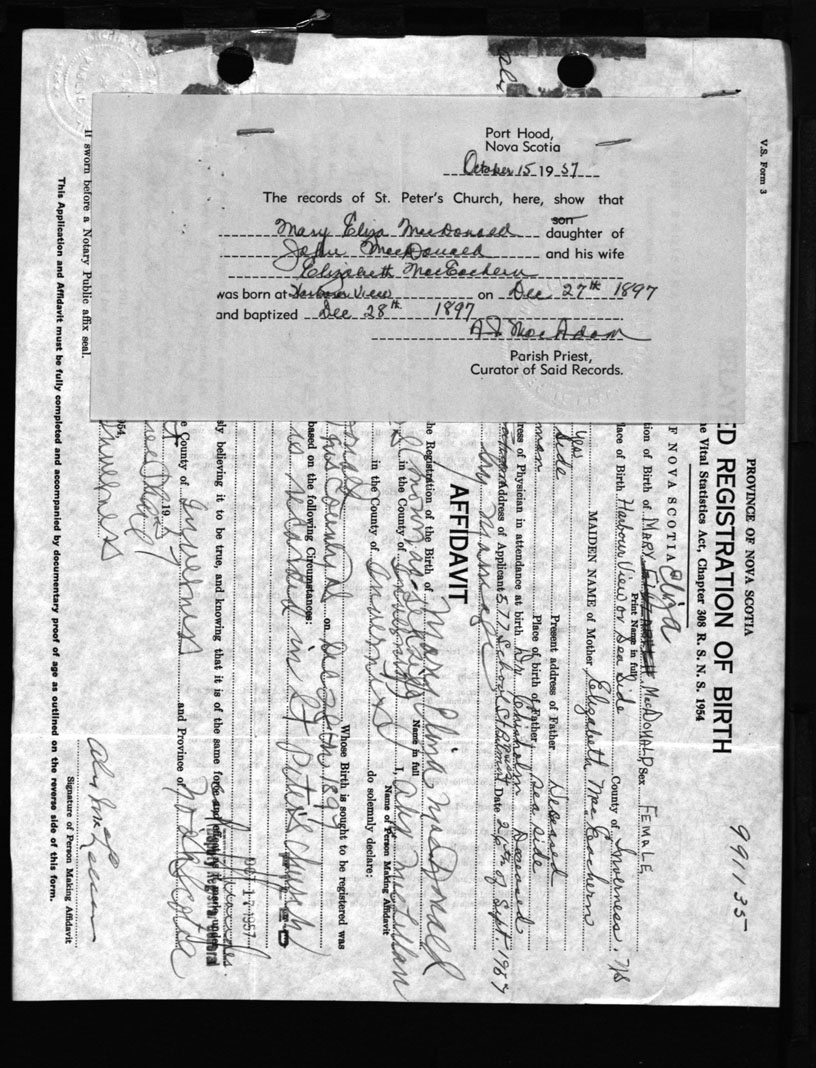 Port Hood,
Nova Scotia
October 15 1957
The records of St. Peter's Church, here, show that
son
Mary Eliza MacDonald daughter of
John MacDonald and his wife
Elizabeth MacEachern
was born at Harbour View on Dec 27th 1897
and baptized Dec 28th 1897
MacAdam
Parish Priest,
Curator of Said Records.
V.S. Form 3
991135
PROVINCE OF NOVA SCOTIA
ED REGISTRATION OF BIRTH
e Vital Statistics Act, Chapter 308 R. S. N. S. 1954
F NOVA SCOTIA
Eliza
tion of Birth of MARY MacDONALD Sex FEMALE
Print Name in full
lace of Birth Harbour View or Sea Side County of Inverness. N/S
MAIDEN NAME of Mother Elizabeth MacEachern
yes
Side Present address of Father Deceased
man Place of birth of Father Sea side
ress of Physician in attendance at birth Dr. Chisholm Deceased
Address of Applicant 577 School St Belmont Date of Sept. 1957
by Marriage
AFFIDAVIT
he Registration of the Birth of Mary Elina MacDonald
Name in full
in the County of I,
Name of Person Making Affidavit
in the County of Inverness do solemnly declare:
Whose Birth is sought to be registered was
this County on 1897
based on the following Circumstances:
is recorded in St Peter's Church
sly believing it to be true, and knowing that it is of the same force and
OCT 17 1957
e County of Inverness and Province of
19
954
Inverness
Signature of Person Making Affidavit
If sworn before a Notary Public affix seal.
This Application and Affidavit must be fully completed and accompanied by documentary proof of age as outlined on the reverse side of this form.